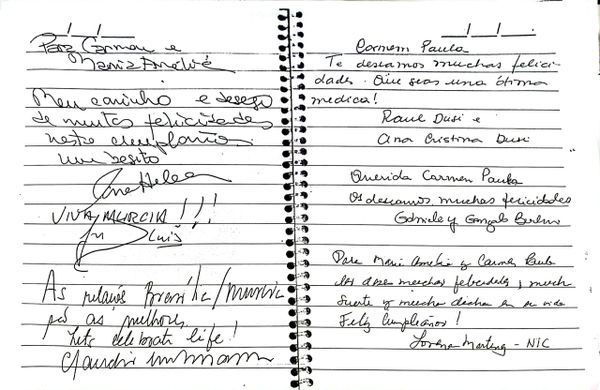 Para Carmen e
Maria Amélia
Meu carinho e desejo
de muitas felicidades
neste cumpleaños
um besito
Ana Helena
VIVA MURCIA!!!
Luis
As Brasília/Murcia
as melhores
Lets celebrate life!
Claudio
Carmem Paula
Te deseamos muchas felici-
dades. Que seas una ótima
medica!
Raul Dusi e
Ana Cristina Dusi
Querida Carmen Paula
Os deseamos muchas felicidades
Gabriele y Gonzalo
Para Maria Amelia y Carmen Paula
les deseo muchas felicidades, mucha
suerte y mucha dicha en su vida
Feliz cumpleaños!
Lorena Martinez - NIC